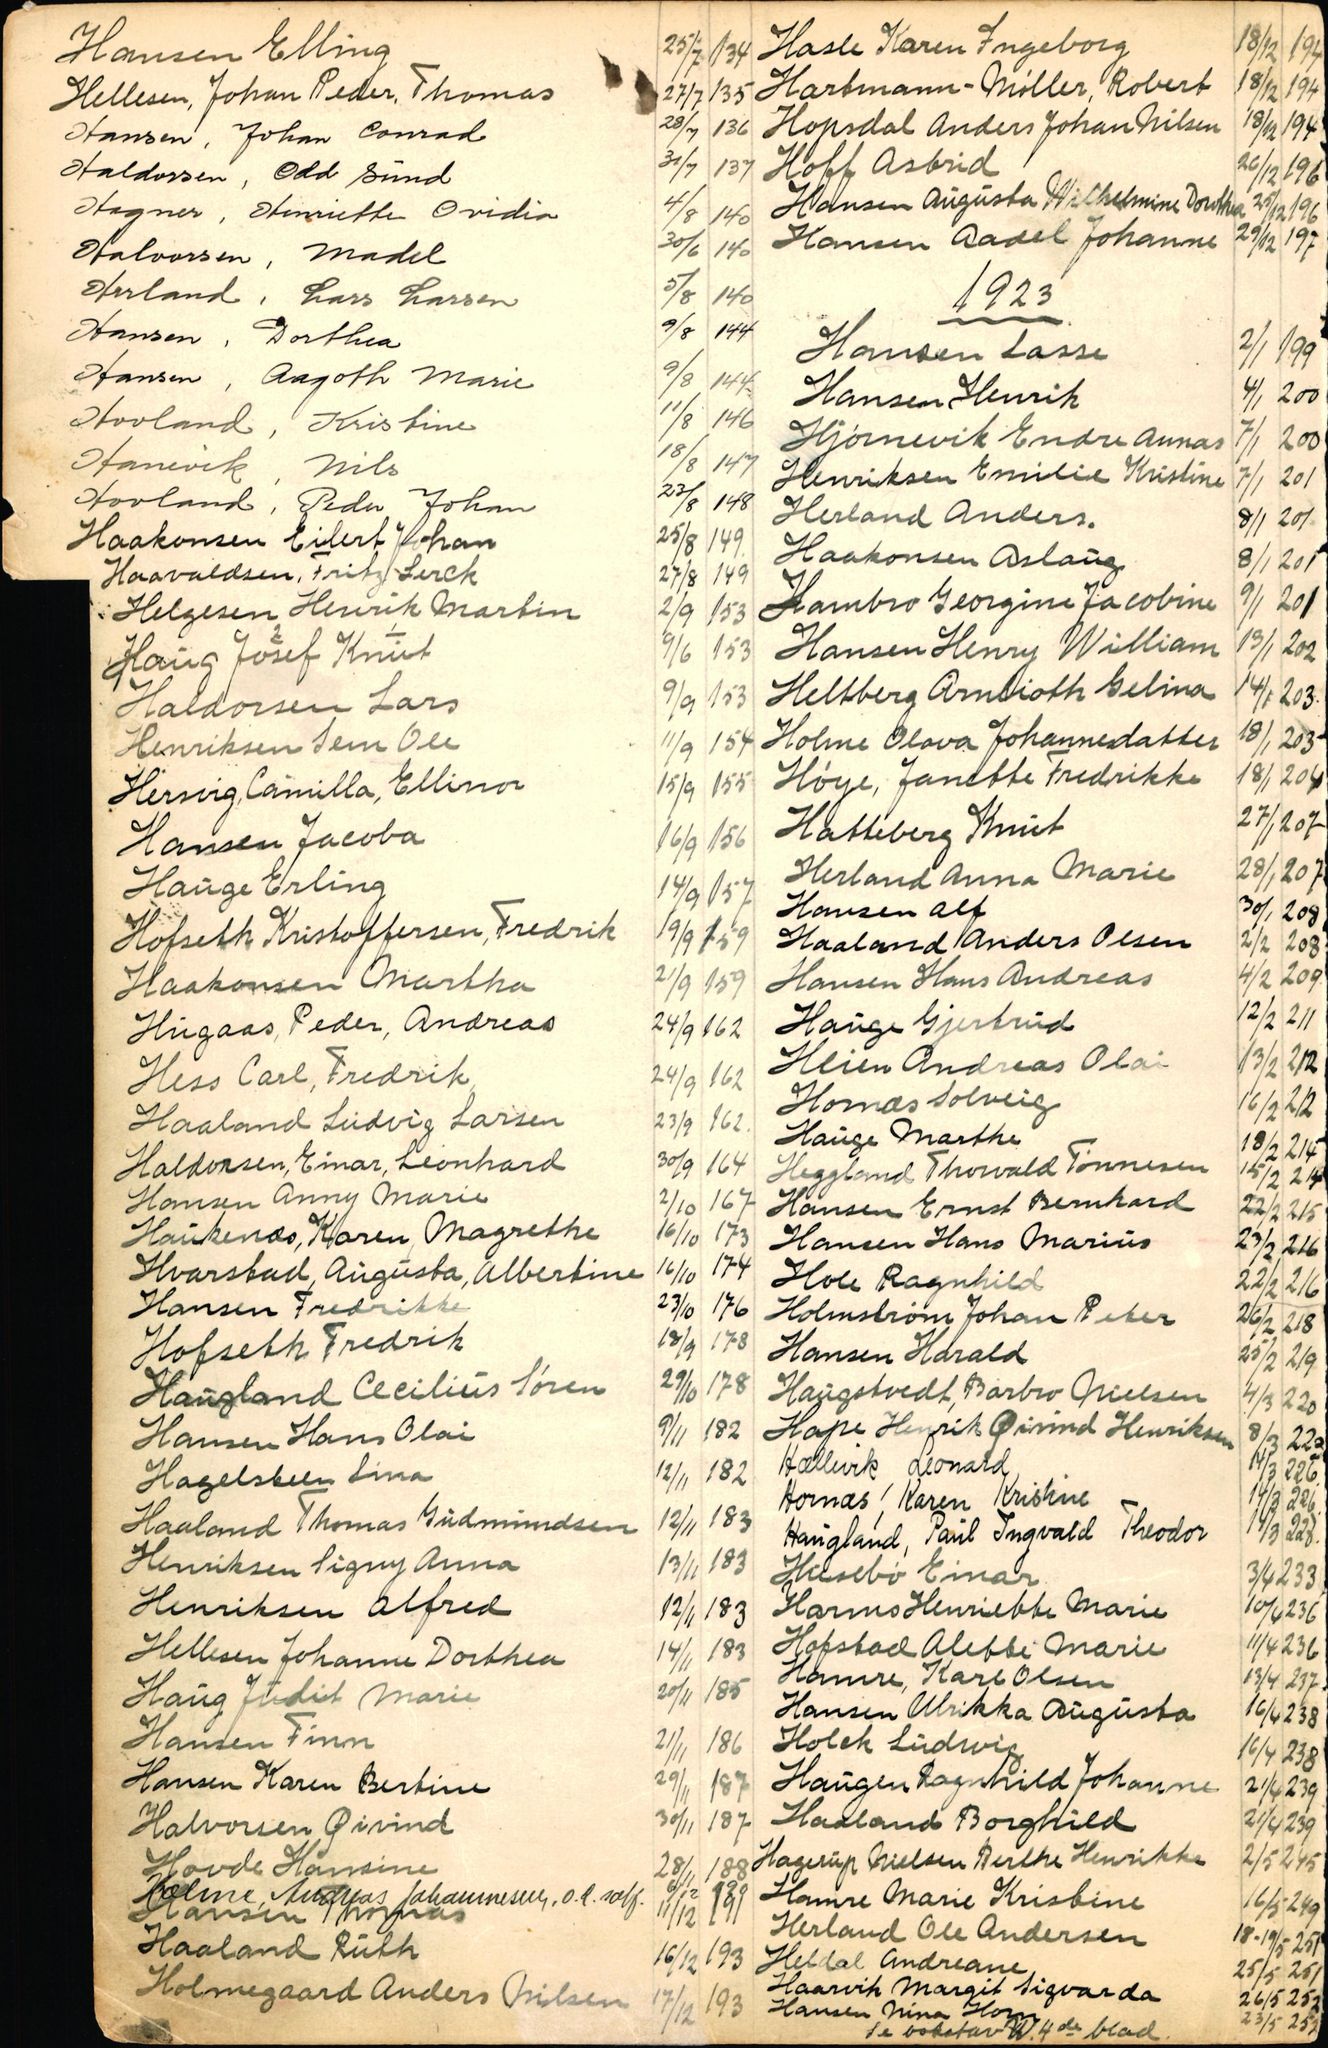 Hansen Elling 25/7 134
Hellesen, Johan Peder, Thomas 27/7 135
Hansen, Johan Conrad 28/7 136
Haldorsen, Odd Sund 31/7 137
Hagner, Henriette Ovidia 4/8 140
Halvorsen, Madel 30/6 140
Herland, Lars Larsen 5/8 140
Hansen, Dorthea 9/8 144
Hansen, Aagoth Marie 9/8 144
Hovland, Kristine 11/8 146
Hanevik, Nils 18/8 147
Hovland, Peder Johan 23/8 148
Haakonsen Eilert Johan 25/8 149
Haavaldsen, Fritz Lerck 27/8 149
Helgesen Henrik Martin 2/9 153
Haug Josef Knut 9/6 153
Haldorsen Lars 9/9 153
Henriksen Sem Ole 11/9 154
Hersvig, Camilla, Ellinor 15/9 155
Hansen Jacoba 16/9 156
Hauge Erling 14/9 157
Hofseth Kristoffersen, Fredrik 19/9 159
Haakonsen Martha 21/9 159
Hugaas, Peder, Andreas 24/9 162
Hess Carl, Fredrik 24/9 162
Haaland Ludvig Larsen 23/9 162
Haldorsen, Einar, Leonhard 30/9 164
Hansen Anny Marie 2/10 167
Haukenæs, Karen Magrethe 16/10 173
Hvarstad, Augusta, Albertine 16/10 174
Hansen Fredrikke 23/10 176
Hofseth Fredrik 18/9 178
Haugland Cecilius Søren 29/10 178
Hansen Hans Olai 9/11 182
Hagelsteen Lina 12/11 182
Haaland Thomas Gudmundsen 12/11 183
Henriksen Signy Anna 13/11 183
Henriksen Alfred 12/11 183
Hellesen Johanne Dorthea 14/11 183
Haug Judit Marie 20/11 185
Hansen Finn 21/11 186
Hansen Karen Bertine 29/11 187
Halvorsen Øivind 30/11 187
Hovde Hansine 28/11 188
Holme, Andreas Johannesen,
Hansen Thomas 11/12 191
Haaland Ruth 16/12 193
Holmegaard Anders Nilsen 17/12 193
Hasle Karen Ingeborg 18/12 194
Hartmann-Møller, Robert 18/12 194
Hopsdal Anders Johan Nilsen 18/12 194
Hoff Astrid 26/12 196
Hansen Augusta Wilhelmine Dorthea 25/12 196
Hansen Aadel Johanne 29/12 197
1923
Hansen Lasse 2/1 199
Hansen Henrik 4/1 200
Hjørnevik Endre Annas 7/1 200
Henriksen Emilie Kristine 7/1 201
Herland Anders. 8/1 201
Haakonsen Aslaug 8/1 201
Hambro Georgine Jacobine 9/1 201
Hansen Henry William 13/1 202
Heltberg Arnlioth Gelina 14/1 203
Holme Olava Johannesdatter 18/1 203
Høye, Janette Fredrikke 18/1 204
Hatteberg Knut 27/1 207
Herland Anna Marie 28/1 207
Hansen Alf 30/1 208
Haaland Anders Olsen 2/2 208
Hansen Hans Andreas 4/2 209
Hauge Gjertrud 12/2 211
Heien Andreas Olai 13/2 212
Hornæs Solveig 16/2 212
Hauge Marthe 18/2 214
Heggland Thorvald Tønnesen 15/2 214
Hansen Ernst Bernhard 22/2 215
Hansen Hans Marius 23/2 216
Hole Ragnhild 22/2 216
Holmstrøm Johan Peter 26/2 218
Hansen Harald 25/2 219
Haugstvedt, Barbro Nielsen 4/3 220
Hope Henrik Øivind Henriksen 8/3 222
Hællevik Leonard 14/3 226
Hornæs, Karen Kristine 14/3 226
Haugland, Paul Ingvald Theodor 19/3 228
Husebø Einar 3/4 233
Harms Henriette Marie 10/4 236
Hofstad Alette Marie 11/4 236
Hamre, Karl Olsen 13/4 237
Hansen Ulrikka Augusta 16/4 238
Holck Ludwig 16/4 238
Haugen Ragnhild Johanne 21/4 239
Haaland Borghild 21/4 239
Hagerup Nielsen Berthe Henrikke 2/5 245
Hamre Marie Kristine 16/5 249
Herland Ole Andersen 18-19/5 251
Heldal Andreane 25/5 251
Haarvik Margit Sigvarda 26/5 252
Hansen Nina Horn 23/5 252
Se bokstav W. 4de blad.